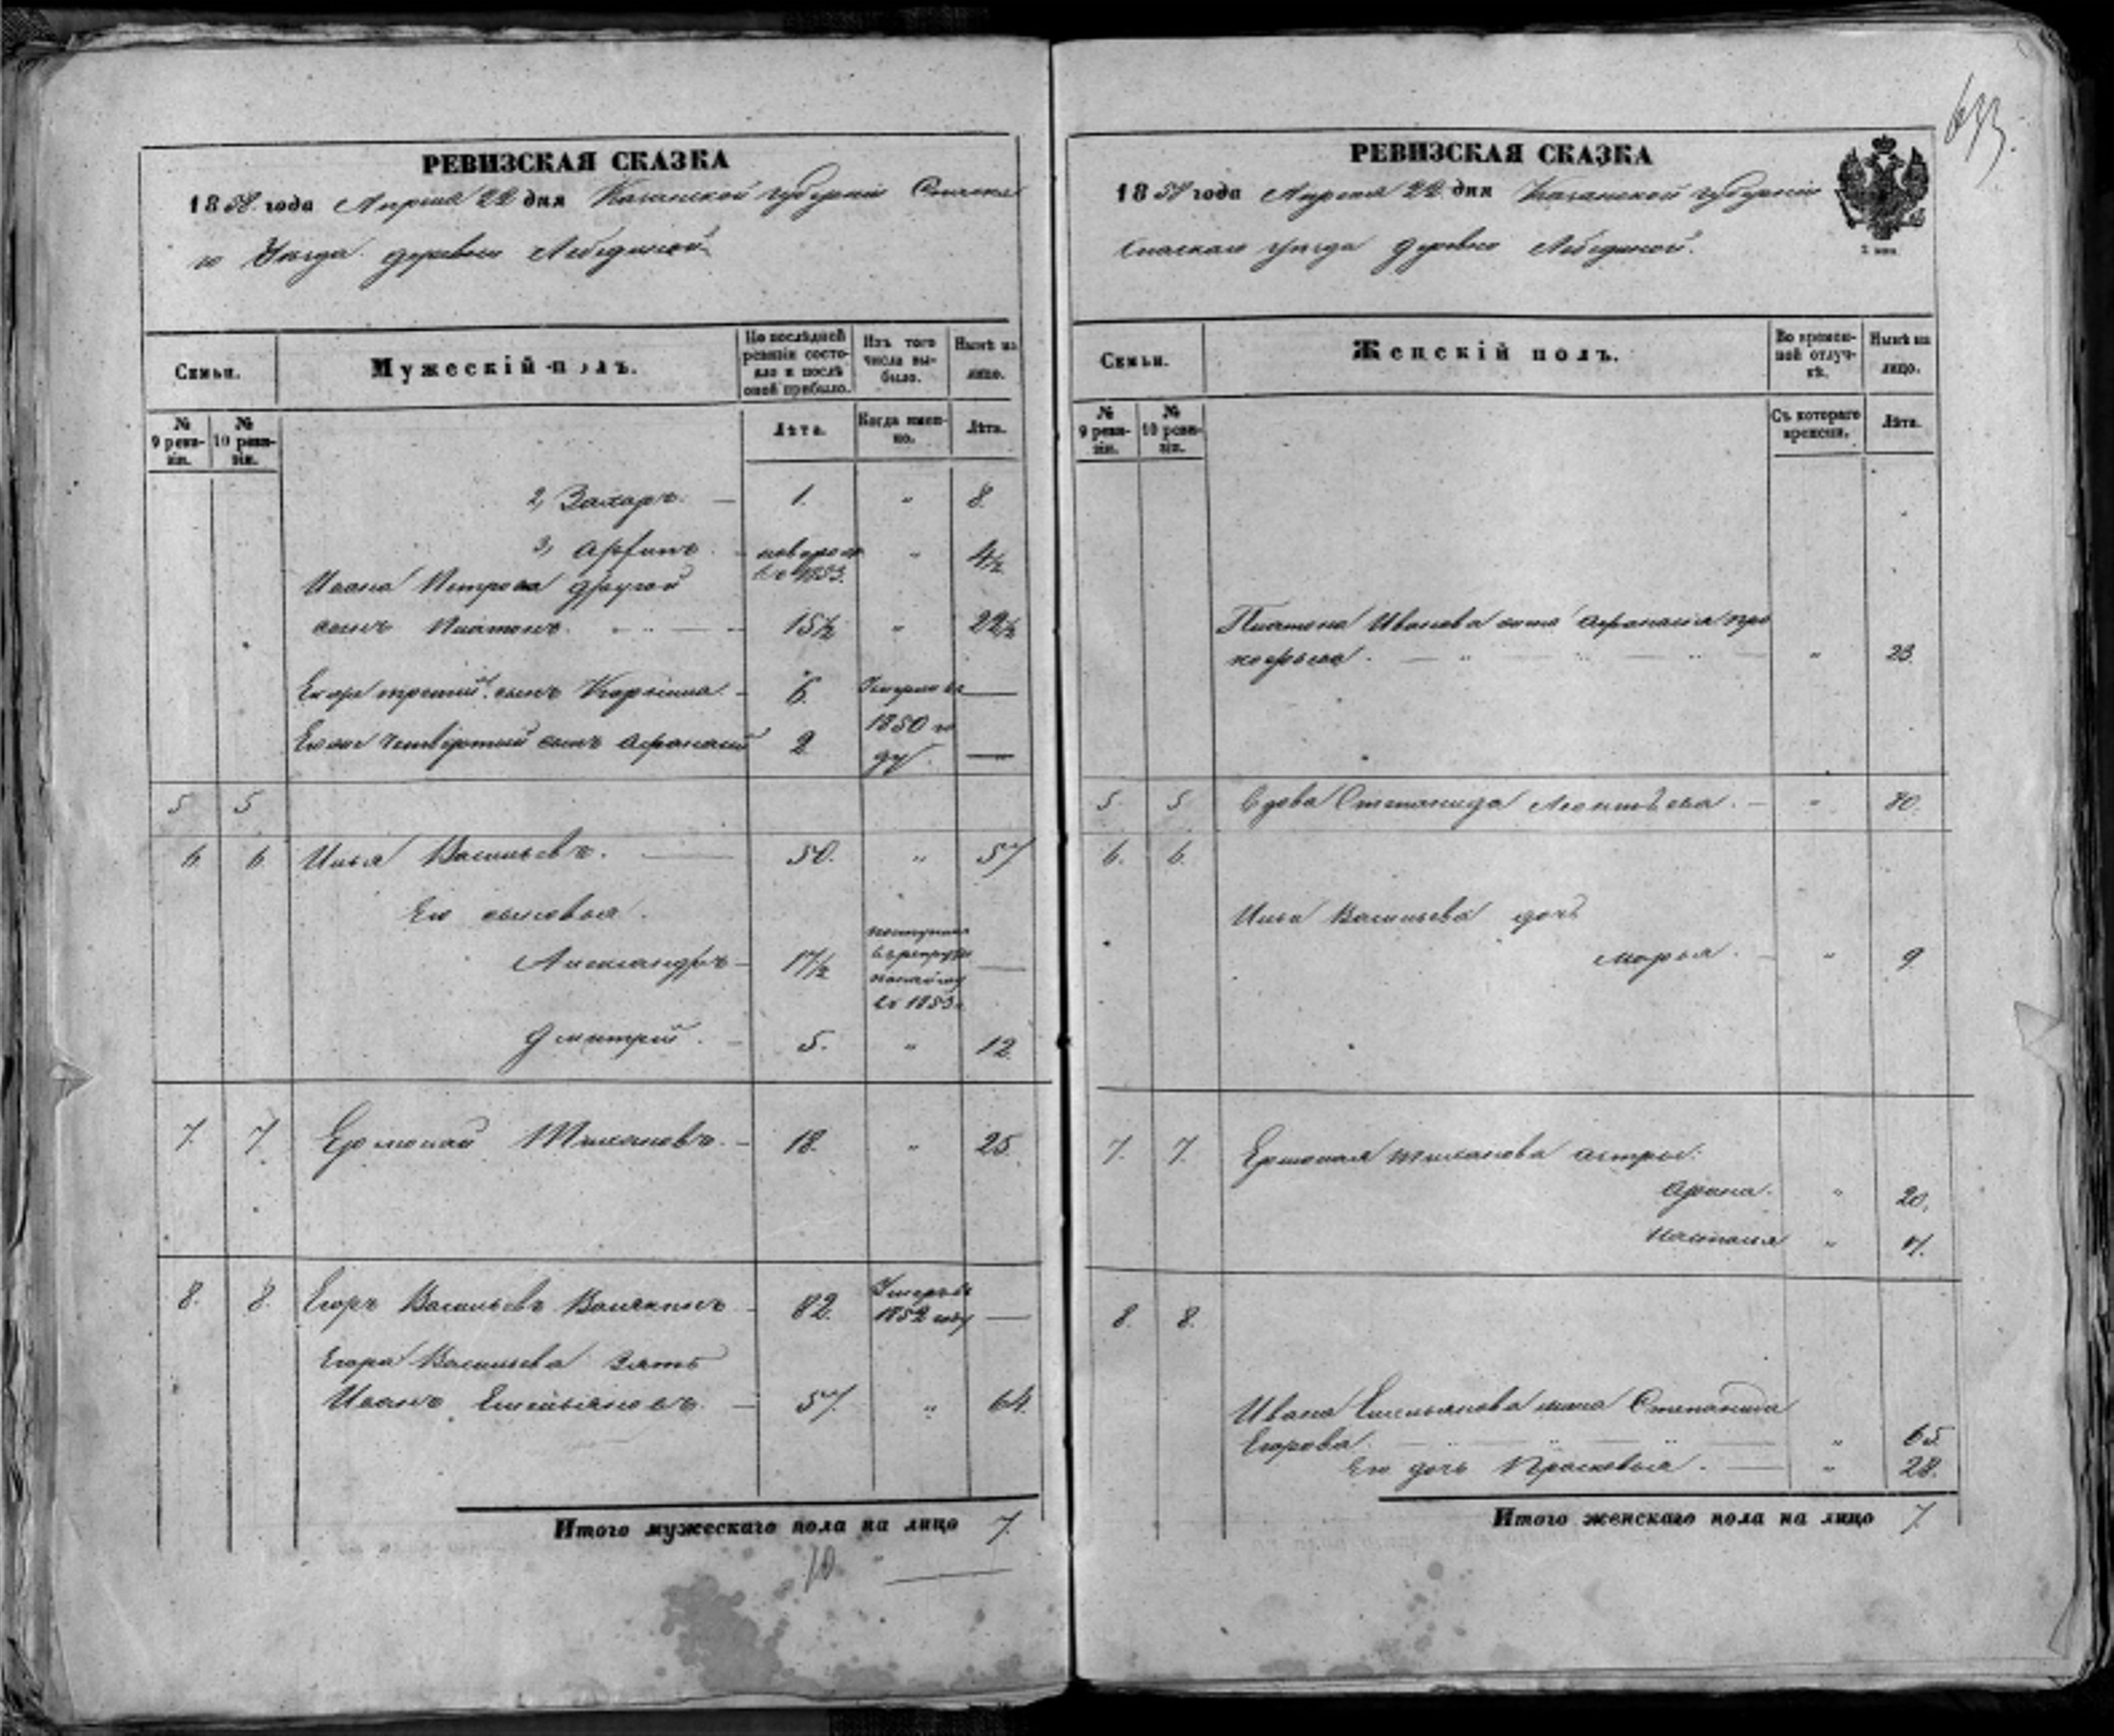 633.
РЕВИЗСКАЯ СКАЗКА
1858 года Апреля 22 дня Казанской губернiи Спаска
го Уезда деревни Лебединой
Семьи.
Мужескiй полъ.
По послѣдней ревизiи состояло и послѣ оной прибыло.
Изъ того числа выбыло.
Нынѣ на лицо.
№ 9 ревизiи.
№ 10 ревизiи.
Лѣта.
Когда именно.
Лѣта.
2, Захаръ. — 1. " 8.
3, новорож " 4½
въ 1853.
Ивана Петрова другой
сынъ Платонъ. 15½ " 22½
Его третiй сынъ 6. Умерли въ —
Его же четвёртый сынъ Афанасiй 2 1850 го
ду —
5 5
6. 6. Илья Васильевъ. — 50. " 57.
Его сыновья.
Александръ — 17½ поступилъ
въ рекруты —
въ 1853.
Дмитрiй. — 5. " 12.
7. 7. Ермолай — 18. " 25.
8. 8. Егоръ Васильевъ — 82. Умеръ въ
1852 году —
Егора Васильева зять
Иванъ Емельяновъ. — 57. " 64.
Итого мужескаго пола на лицо 7.
10.
РЕВИЗСКАЯ СКАЗКА
1858 года Апреля 22 дня Казанской губернiи
Спаскаго уезда деревни Лебединой.
2 коп.
Семьи.
Женскiй полъ.
Во временной отлучкѣ.
Нынѣ на лицо.
№ 9 ревизiи.
№ 10 ревизiи.
Съ котораго времени.
Лѣта.
Платона Иванова жена Афанасiя Про
кофьева. — " 23.
5. 5 Вдова Степанида Леонтьева. — " 80.
6. 6.
Ильи Васильева дочь
Марья. — " 9.
7. 7. Ермолая сестры:
Арина. " 20.
Наталья " 17.
8. 8.
Ивана Емельянова жена Степанида
Егорова. — " 65.
Его дочь Прасковья. — " 28.
Итого женскаго пола на лицо 7.